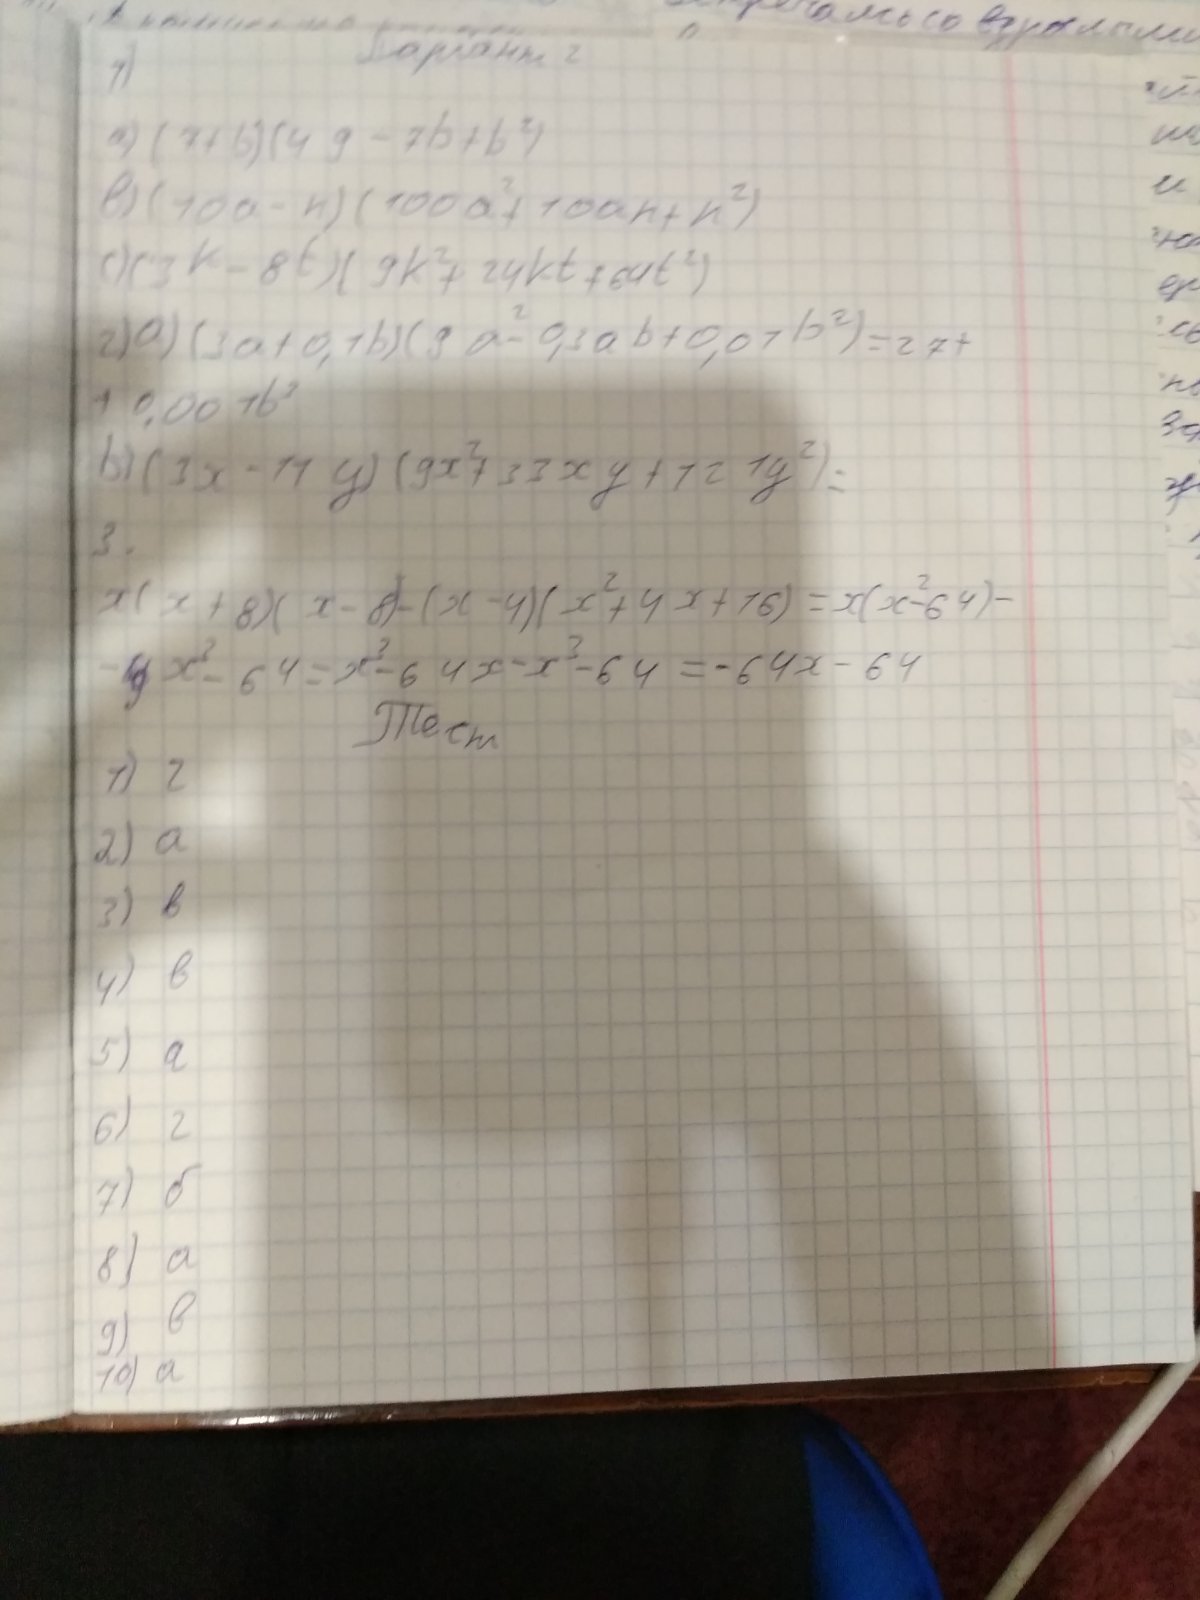 встречались со взрослыми
Вариант 2
1)
а) (7+b)(49-7b+b²)
b) (10a-n)(100a²+10an+n²)
c) (3k-8t)(9k²+24kt+64t²)
2) a) (3a+0,1b)(9a²-0,3ab+0,01b²)=27+
+0,001b³
b) (3x-11y)(9x²+33xy+121y²)=
3.
x(x+8)(x-8)-(x-4)(x²+4x+16)=x(x²-64)-
-x³-64=x³-64x-x³-64=-64x-64
Тест
1) г
2) а
3) в
4) в
5) а
6) г
7) б
8) а
9) в
10) а